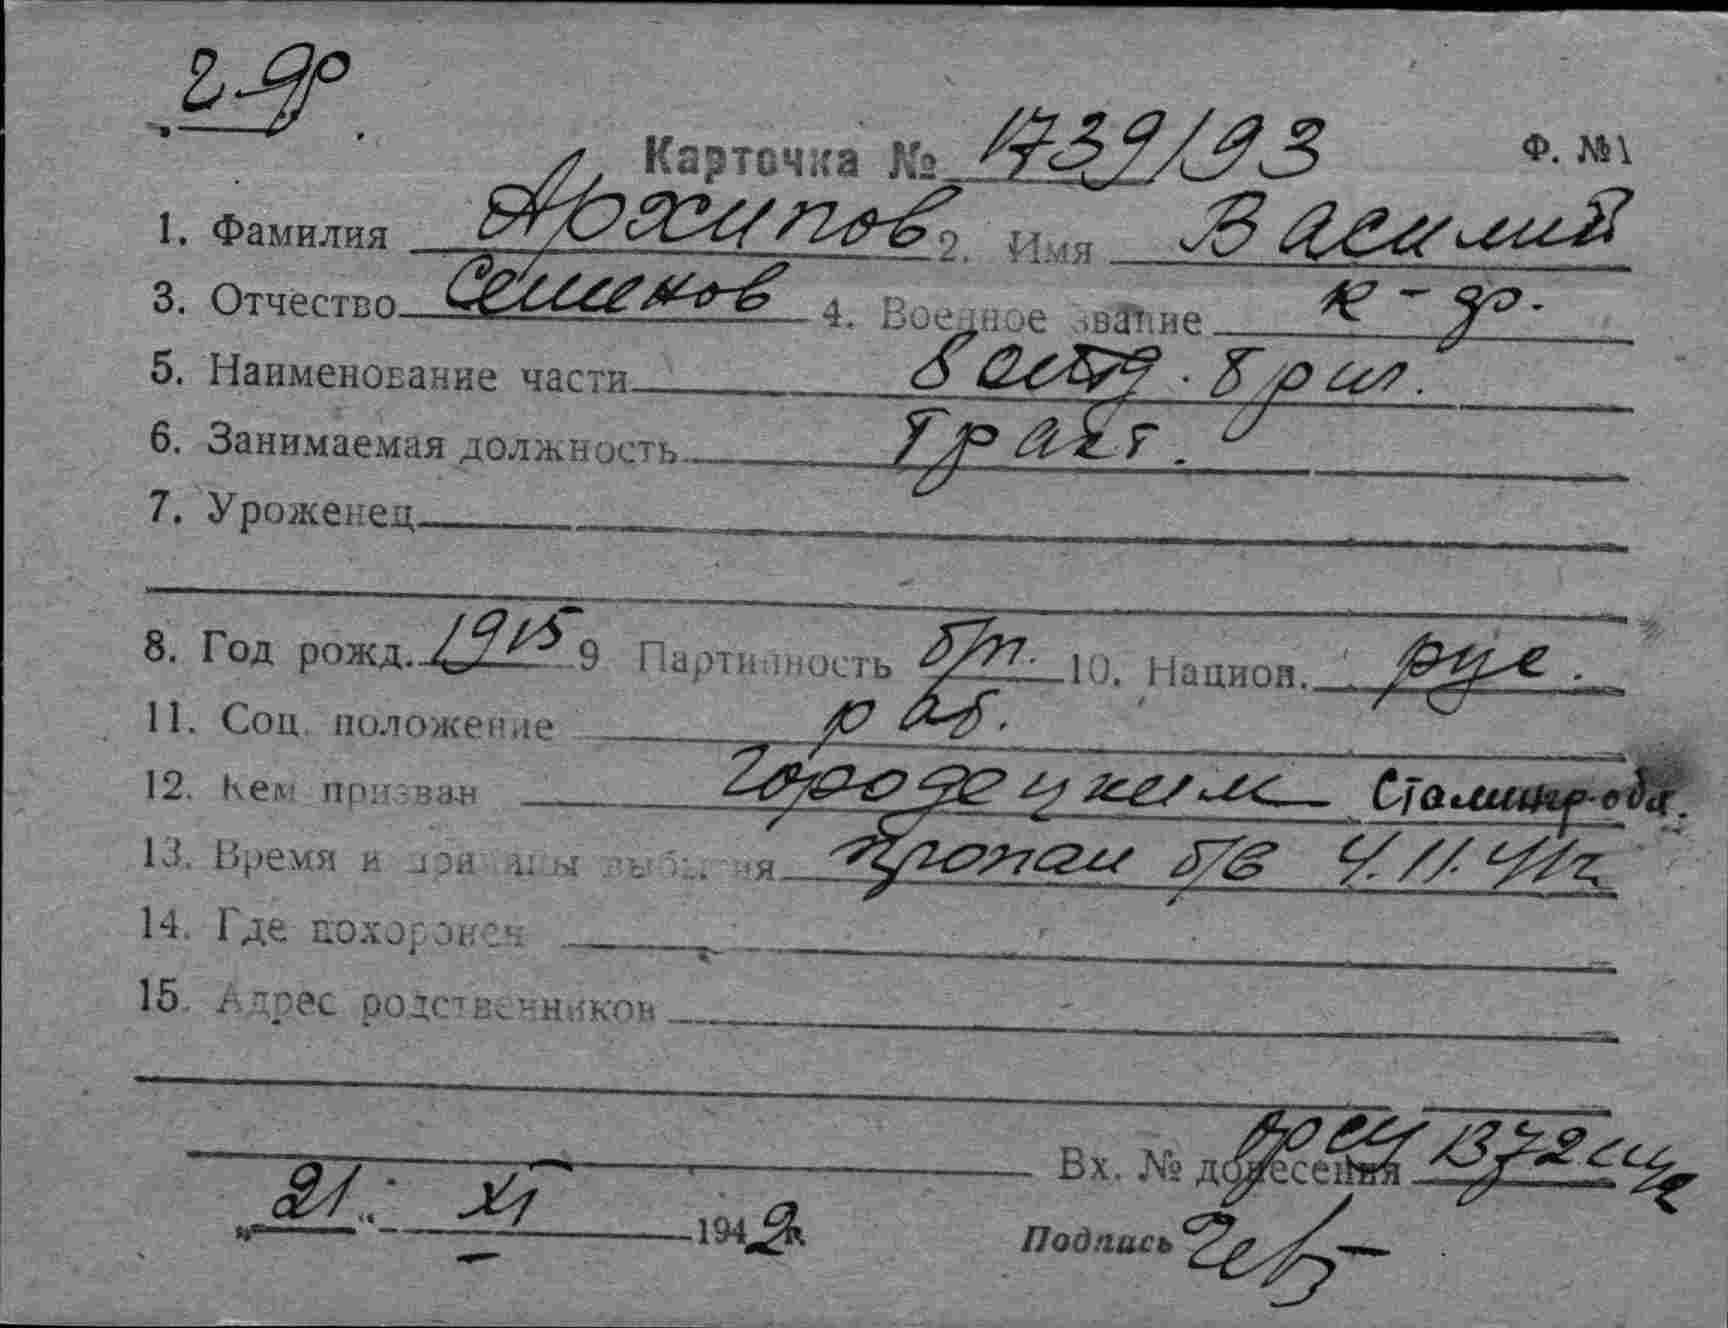 2-др
Карточка № 1739/93 Ф. №1
1. Фамилия Архипов 2. Имя Василий
3. Отчество Семенов 4. Военное звание к-др.
5. Наименование части 8 отд. бриг.
6. Занимаемая должность Тракт.
7. Уроженец
8. Год рожд. 1915 9 Партийность б/п. 10. Национ. рус.
11. Соц. положение раб.
12. Кем призван Городецким Сталингр. обл.
13. Время и причины выбытия Пропал б/в 4.11.41г.
14. Где похоронен
15. Адрес родственников
Вх. № донесения 1372
„21“ XI 1942г.
Подпись